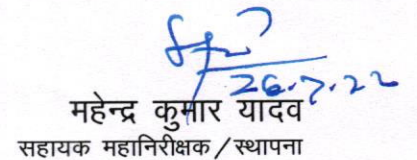 26.7.22
महेन्द्र कुमार यादव
सहायक महानिरीक्षक/स्थापना